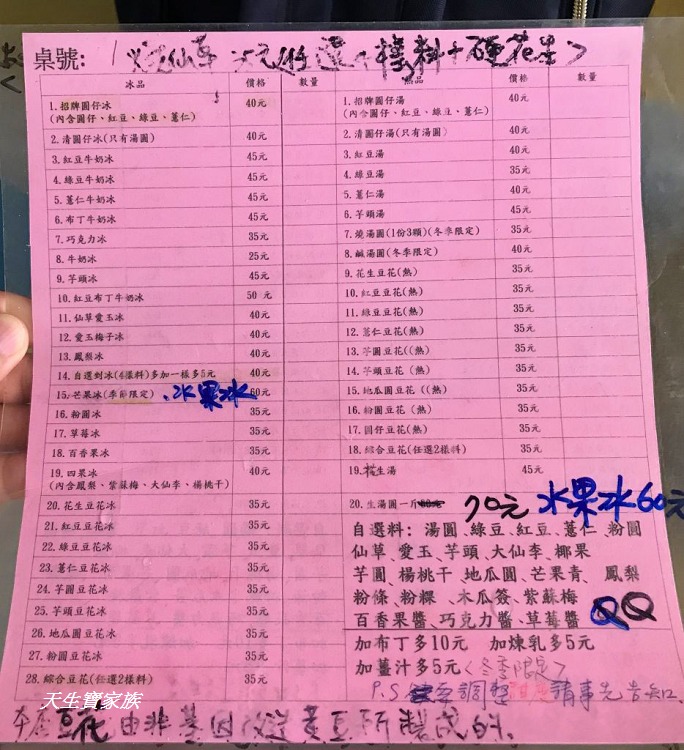 桌號:
燒仙草
冰品 價格 數量
1.招牌圓仔冰 40元
(內含圓仔、紅豆、綠豆、薏仁)
2.清圓仔冰(只有湯圓) 40元
3.紅豆牛奶冰 45元
4.綠豆牛奶冰 45元
5.薏仁牛奶冰 45元
6.布丁牛奶冰 45元
7.巧克力冰 35元
8.牛奶冰 25元
9.芋頭冰 45元
10.紅豆布丁牛奶冰 50 元
11.仙草愛玉冰 40元
12.愛玉梅子冰 40元
13.鳳梨冰 40元
14.自選剉冰(4樣料)多加一樣多5元 40元
15.芒果冰(季節限定)、水果冰 60元
16.粉圓冰 35元
17.草莓冰 35元
18.百香果冰 35元
19.四果冰 40元
(內含鳳梨、紫蘇梅、大仙李、楊桃干)
20.花生豆花冰 35元
21.紅豆豆花冰 35元
22.綠豆豆花冰 35元
23.薏仁豆花冰 35元
24.芋圓豆花冰 35元
25.芋頭豆花冰 35元
26.地瓜圓豆花冰 35元
27.粉圓豆花冰 35元
28.綜合豆花(任選2樣料) 35元
品 價格 數量
1.招牌圓仔湯 40元
(內含圓仔、紅豆、綠豆、薏仁)
2.清圓仔湯(只有湯圓) 40元
3.紅豆湯 40元
4.綠豆湯 35元
5.薏仁湯 40元
6.芋頭湯 45元
7.燒湯圓(1份3顆)(冬季限定) 35元
8.鹹湯圓(冬季限定) 40元
9.花生豆花(熱) 35元
10.紅豆豆花(熱) 35元
11.綠豆豆花(熱) 35元
12.薏仁豆花(熱) 35元
13.芋圓豆花((熱) 35元
14.芋頭豆花(熱) 35元
15.地瓜圓豆花((熱) 35元
16.粉圓豆花(熱) 35元
17.圓仔豆花(熱) 35元
18.綜合豆花(任選2樣料) 35元
19.花生湯 45元
20.生湯圓一斤 70元 水果冰60元
自選料: 湯圓、綠豆、紅豆、薏仁、粉圓
仙草、愛玉、芋頭、大仙李、椰果
芋圓、楊桃干、地瓜圓、芒果青、鳳梨
粉條、粉粿、木瓜簽、紫蘇梅
百香果醬、巧克力醬、草莓醬
加布丁多10元 加煉乳多5元
加薑汁多5元<冬季限定>
P.S 調整 請事先告知
本店豆花由非基因改造黃豆所製成的.
天生寶家族